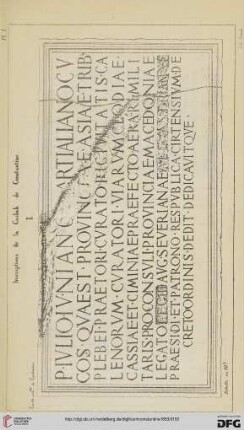 Inscriptions de la Casbah de Constantine
I
P·IVLIO·IVNIANO·MARTIALIANO·CV
COS·QVAEST·PROVINCIAE·ASIAE·TRIB·
PLEBEI·PRAETORI·CVRATORI·CIVITATIS·CA
LENORVM·CVRATORI·VIARVM·CLODIAE·
CASSIAE·ET·CIMINIAE·PRAEFECTO·AERARI·MILI
TARIS·PROCONSVLI·PROVINCIAE·MACEDONIAE
LEGATO·LEG·III·AVG·SEVERIANAE·
PRAESIDI·ET·PATRONO·RESPVBLICA·CIRTENSIVM·DE
CRETO·ORDINIS·DEDIT·DEDICAVITQVE·
http://digi.ub.uni-heidelberg.de/diglit/annconstantine1853/0193